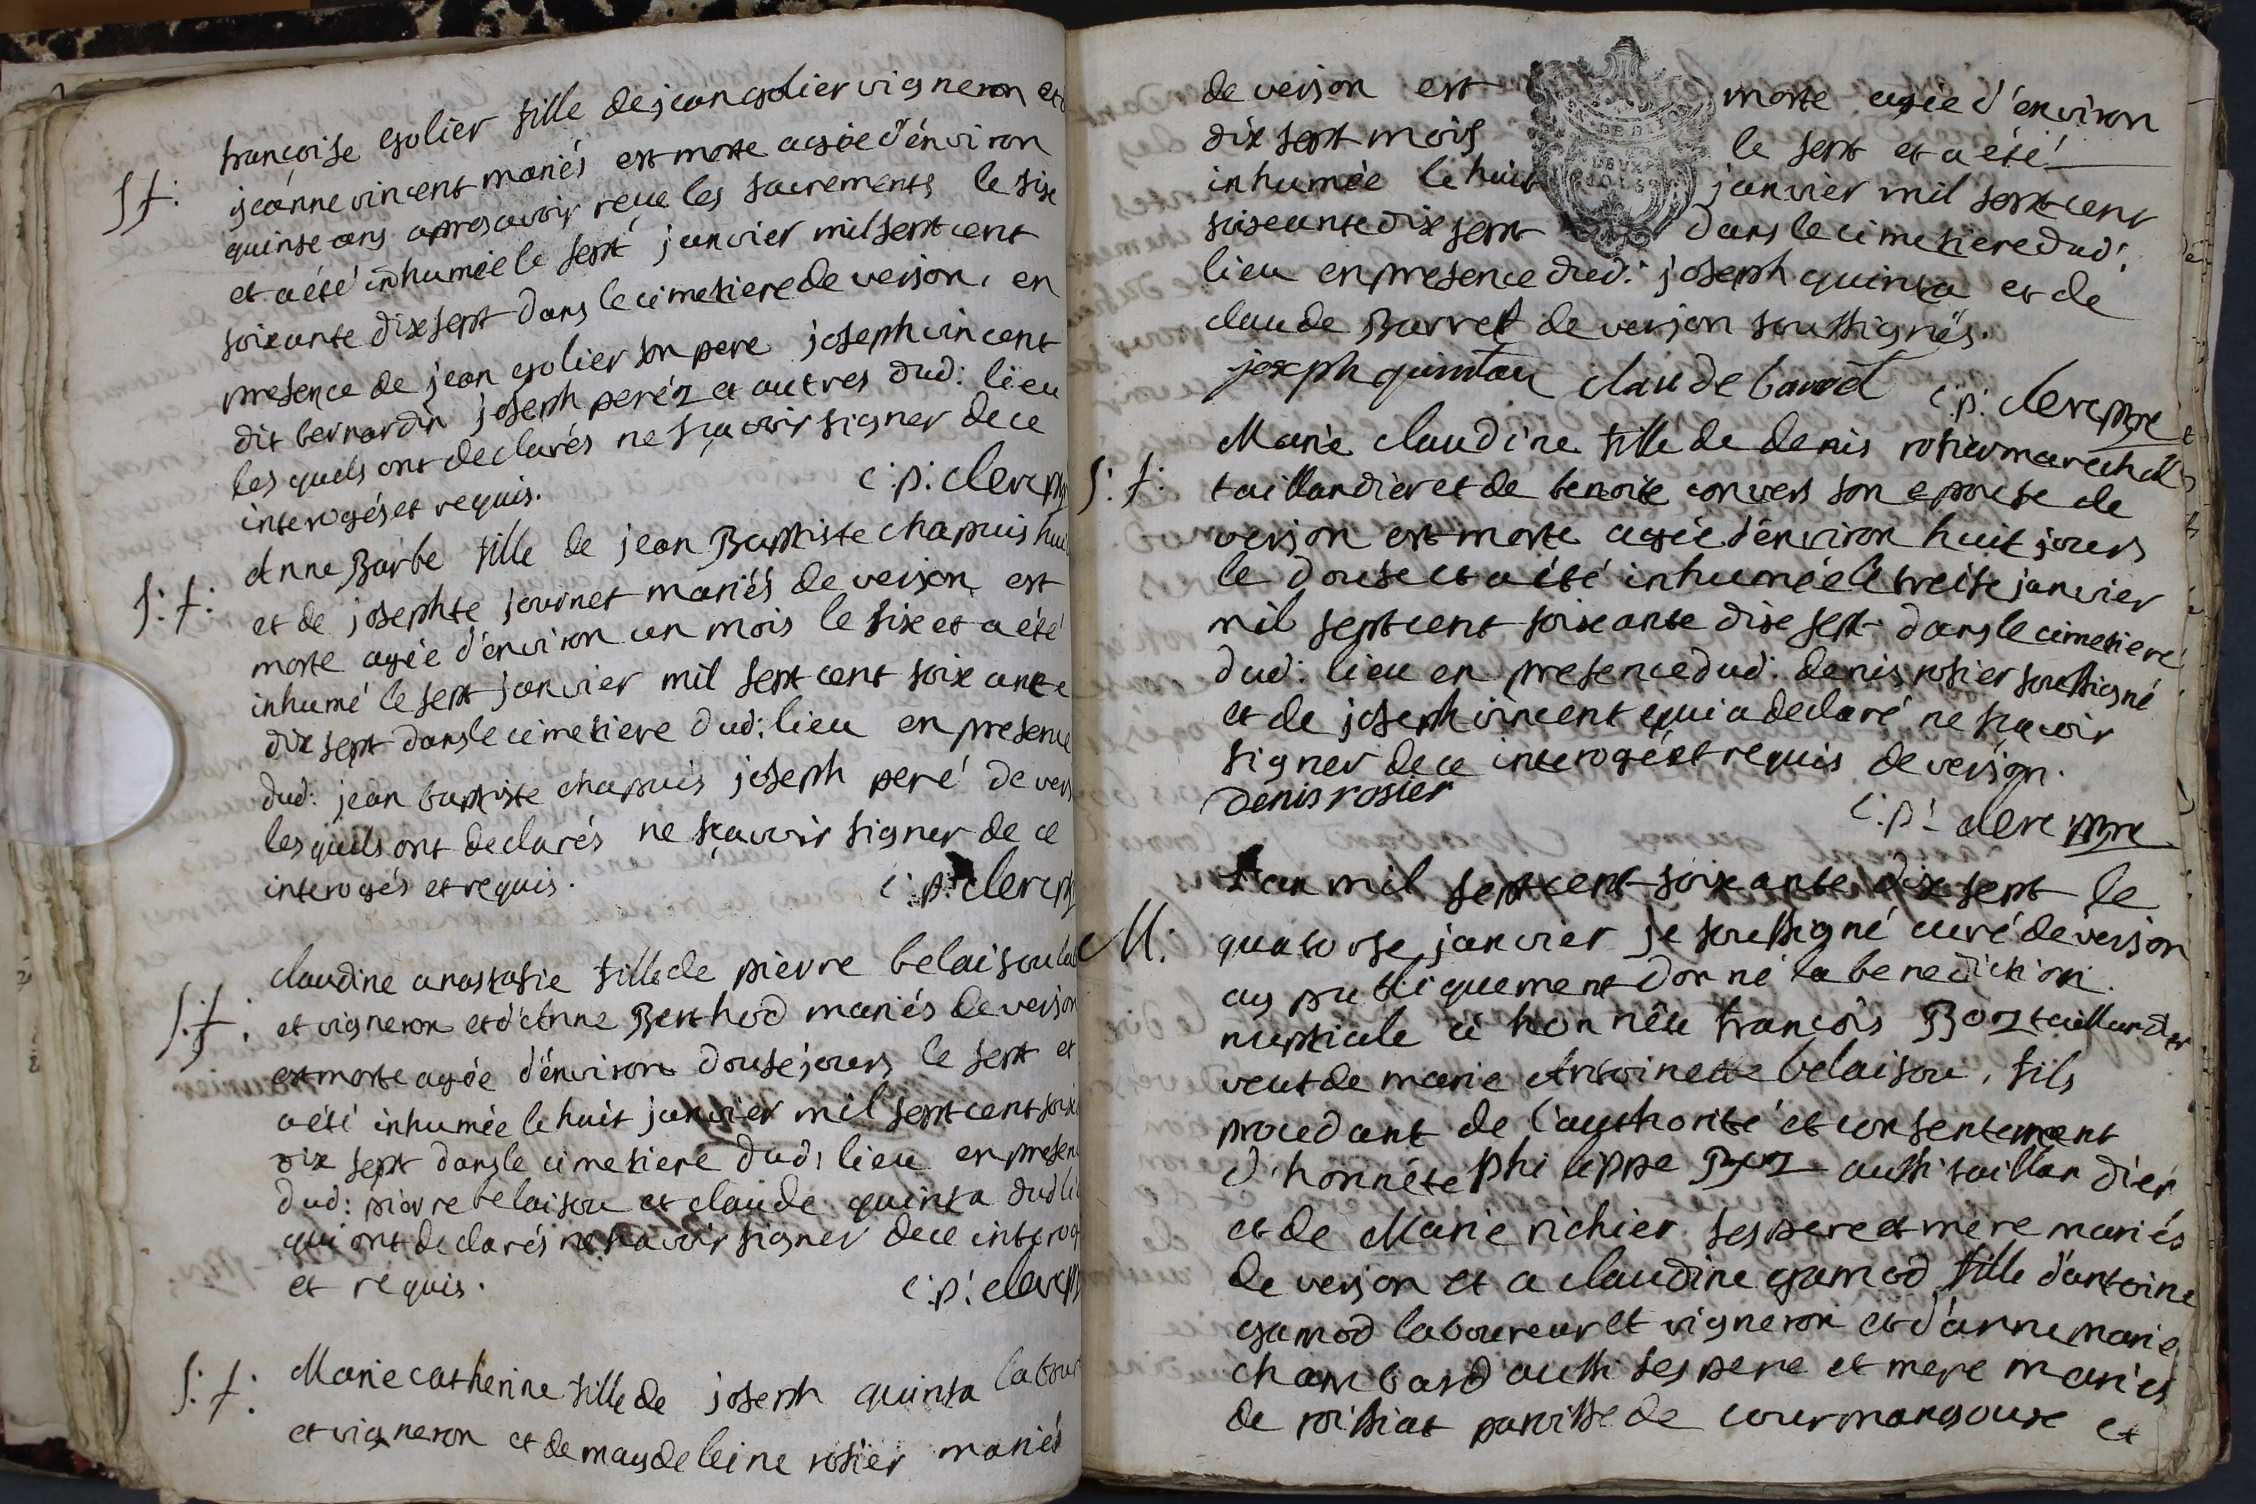 françoise golier fille de jean golier vigneron et
S f:
jeánne vincent mariés est morte agée d'énviron
quinse ans apres avoir reçue les sacrements le six
et a été inhumée le sept janvier mil sept cent
soixante dix sept dans le cimetiere de verjon, en
presence de jean golier son pere joseph vincent
dit bernardin joseph peréz et autres dud: lieu
les quels ont declarés ne sçavoir signer de ce
interogés et requis.
c: p: clerc
S: f:
Anne Barbe fille de jean Baptiste chapuis
et de josephte journet mariés de verjon est
morte agée d'énviron un mois le six et a été
inhumé le sept janvier mil sept cent soixante
dix sept dans le cimetiere dud: lieu en presence
dud: jean baptiste chapuis joseph peré de
les quels ont declarés ne sçavoir signer de ce
interogés et requis.
c: p: clerc
claudine anastasie fille de pierre belaisou
S: f:
et vigneron et d'Anne Berthod mariés de verjon
est morte agée d'énviron douse jours le sept et
a été inhumée le huit janvier mil sept cent
dix sept dans le cimetiere dud: lieu en
dud: pierre belaisou et claude quinsa
qui ont declarés ne savoir signer de ce
et réquis.
c: p: clerc
S: f:
Marie catherine fille de joseph quinsa
et vigneron et de magdeleine rosier mariés
de verjon est morte agée d'énviron
dix sept mois le sept et a été
inhumée le huit janvier mil sept cent
soixante dix sept dans le cimetiere dud:
lieu en presence dud: joseph quinsa et de
claude Barret de verjon soussignés.
joseph claude c: p: clerc ptre
Marie claudine fille de denis rosier marechal
S: f:
taillandier et de benoite convers son epouse de
verjon est morte agée d'énviron huit jours
le douse et a été inhumée le treise janvier
mil sept cent soixante dix sept dans le cimetiere
dud: lieu en presence dud: denis rosier soussigné
et de joseph vincent qui a declaré ne sçavoir
signer de ce interogé et requis de verjon.
denis rosier
c: p: clerc ptre
L'an mil sept cent soixante dix sept le
M:
quatorse janvier je soussigné curé de verjon
ay publiquement donné la benediction
nuptiale à honnête françois taillandier
veuf de marie Antoinette belaisou, fils
procedant de l'authorité et consentement
d'honnéte philippe aussi taillandiér
et de Marie richier ses pere et mere mariés
de verjon et a claudine gamod fille d'antoine
gamod laboureur et vigneron et d'anne marie
chambard aussi ses pere et mere mariés
de roissiat paroisse de courmangoux et